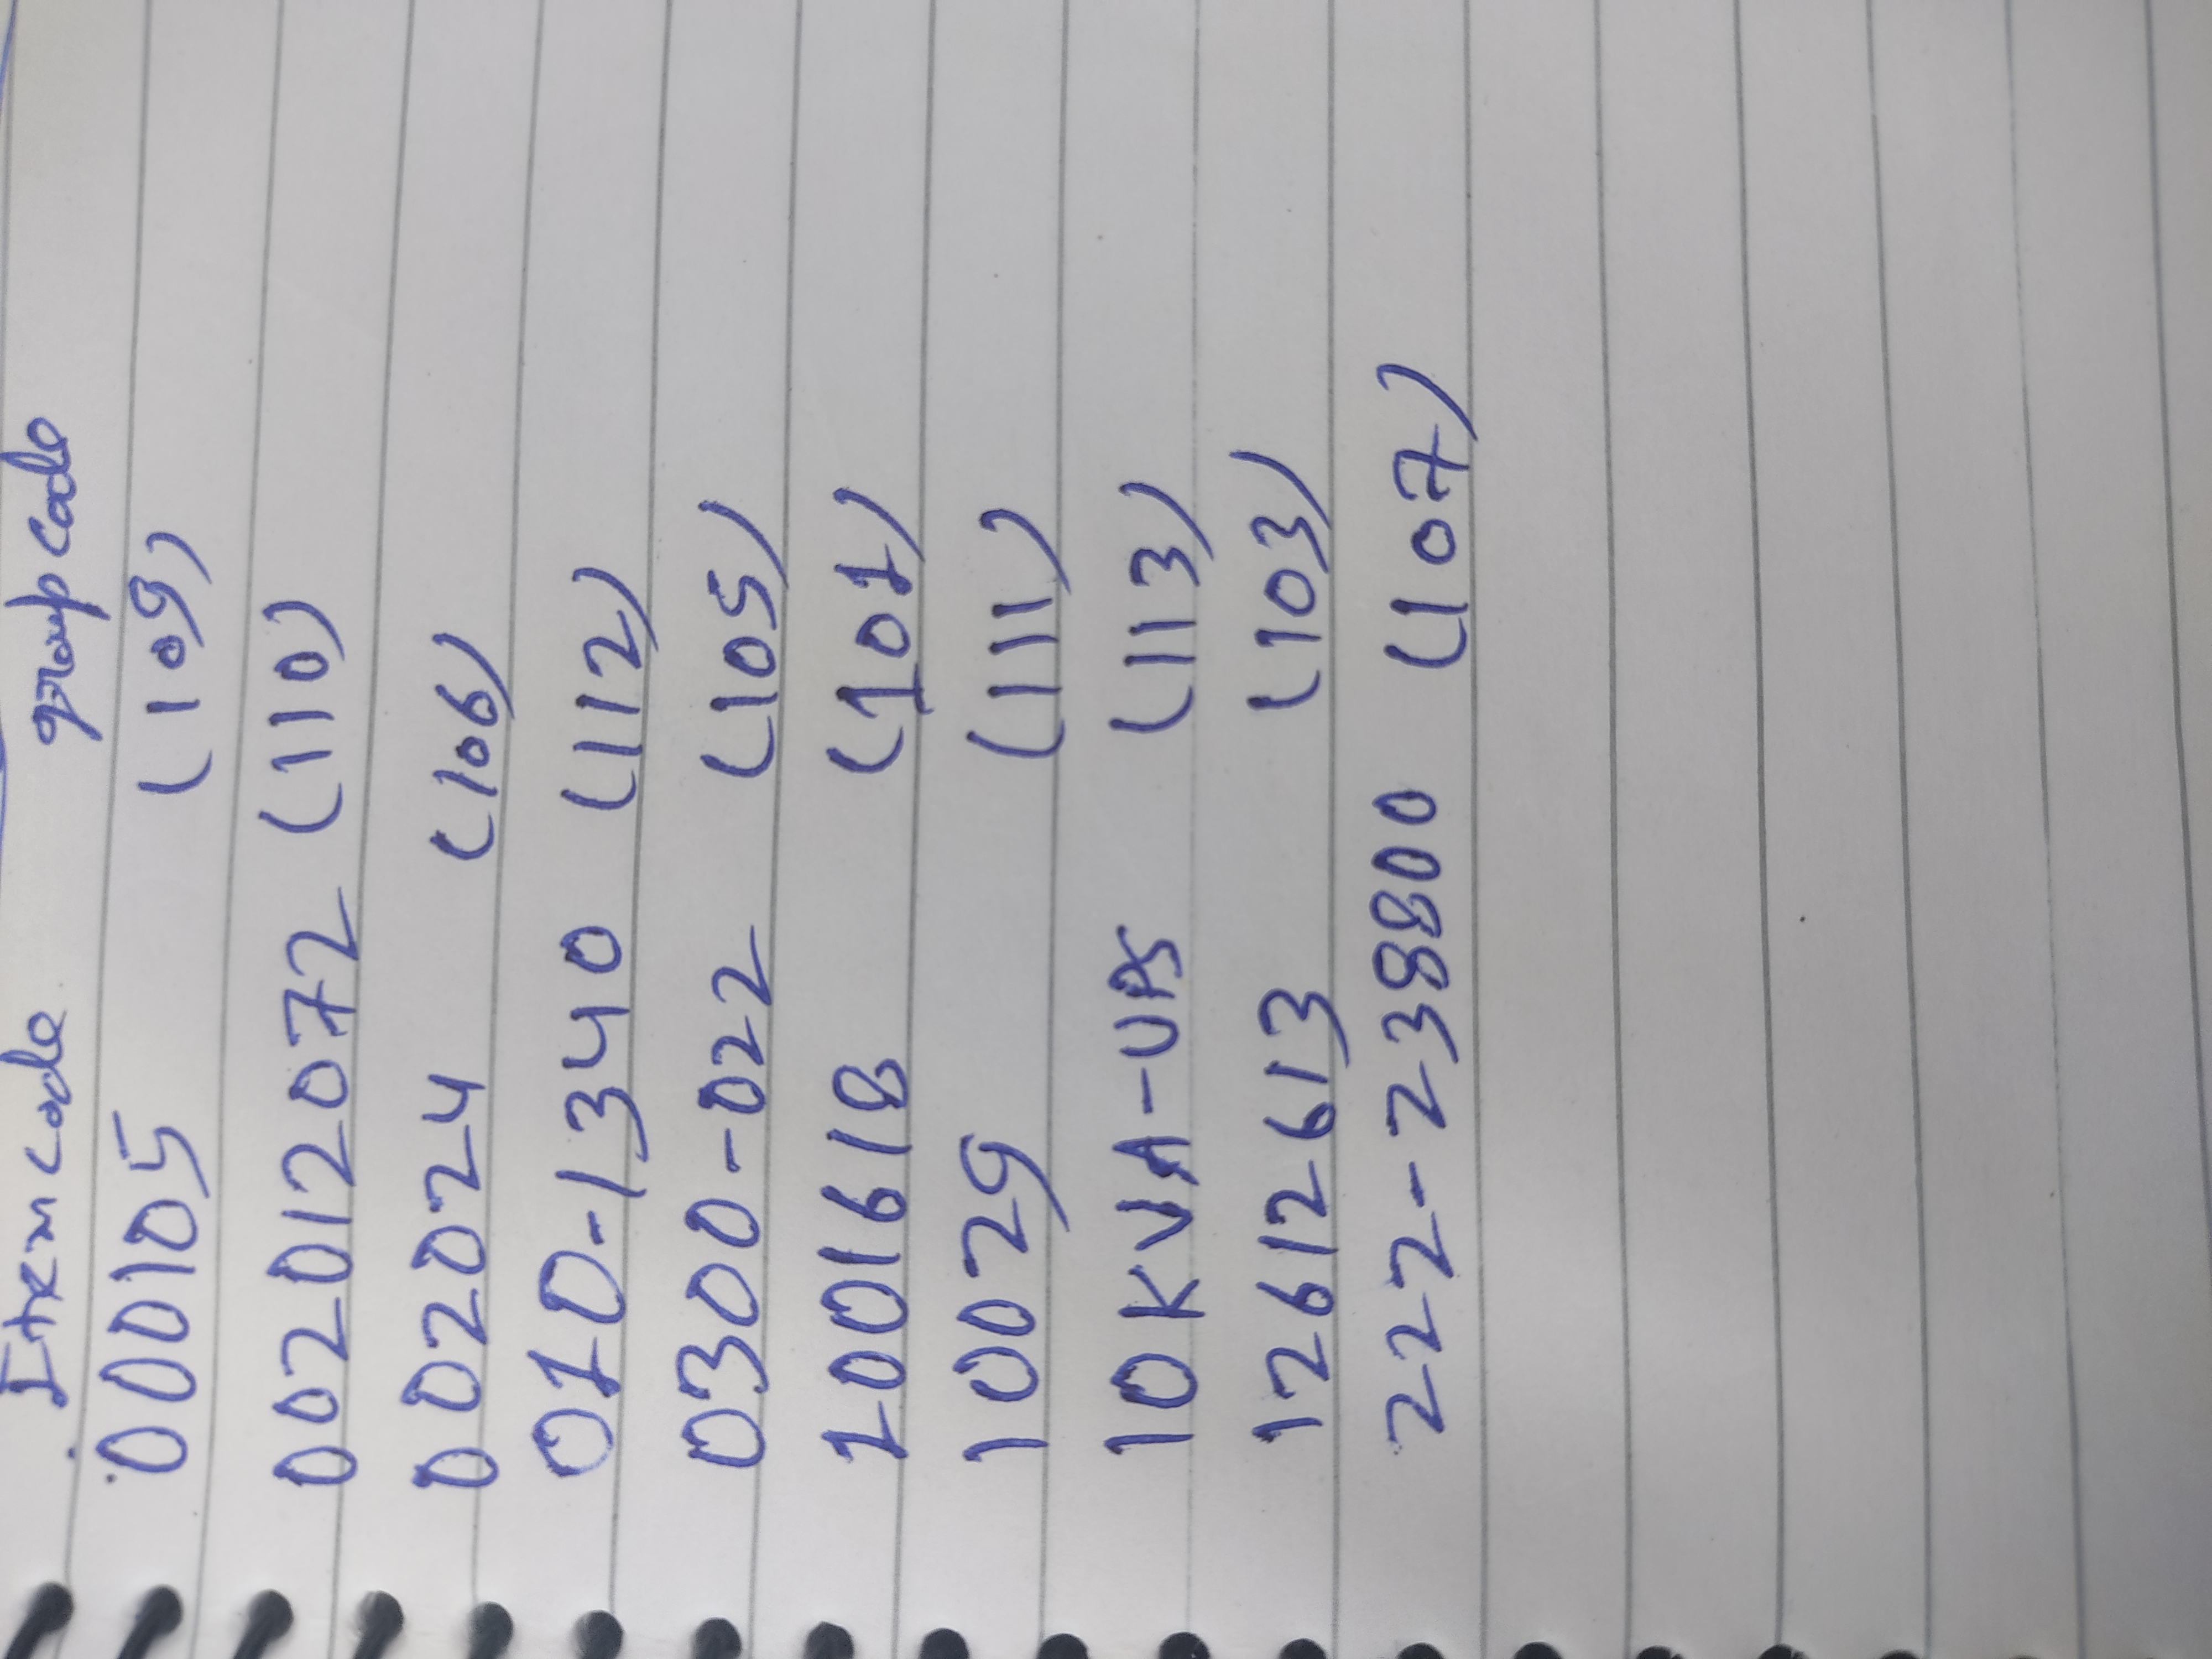 Item code group code
000105 (109)
002012072 (110)
002024 (106)
010-1340 (112)
0300-022 (105)
100161B (101)
10029 (111)
10KVA-UPS (113)
12612613 (103)
222-238800 (107)